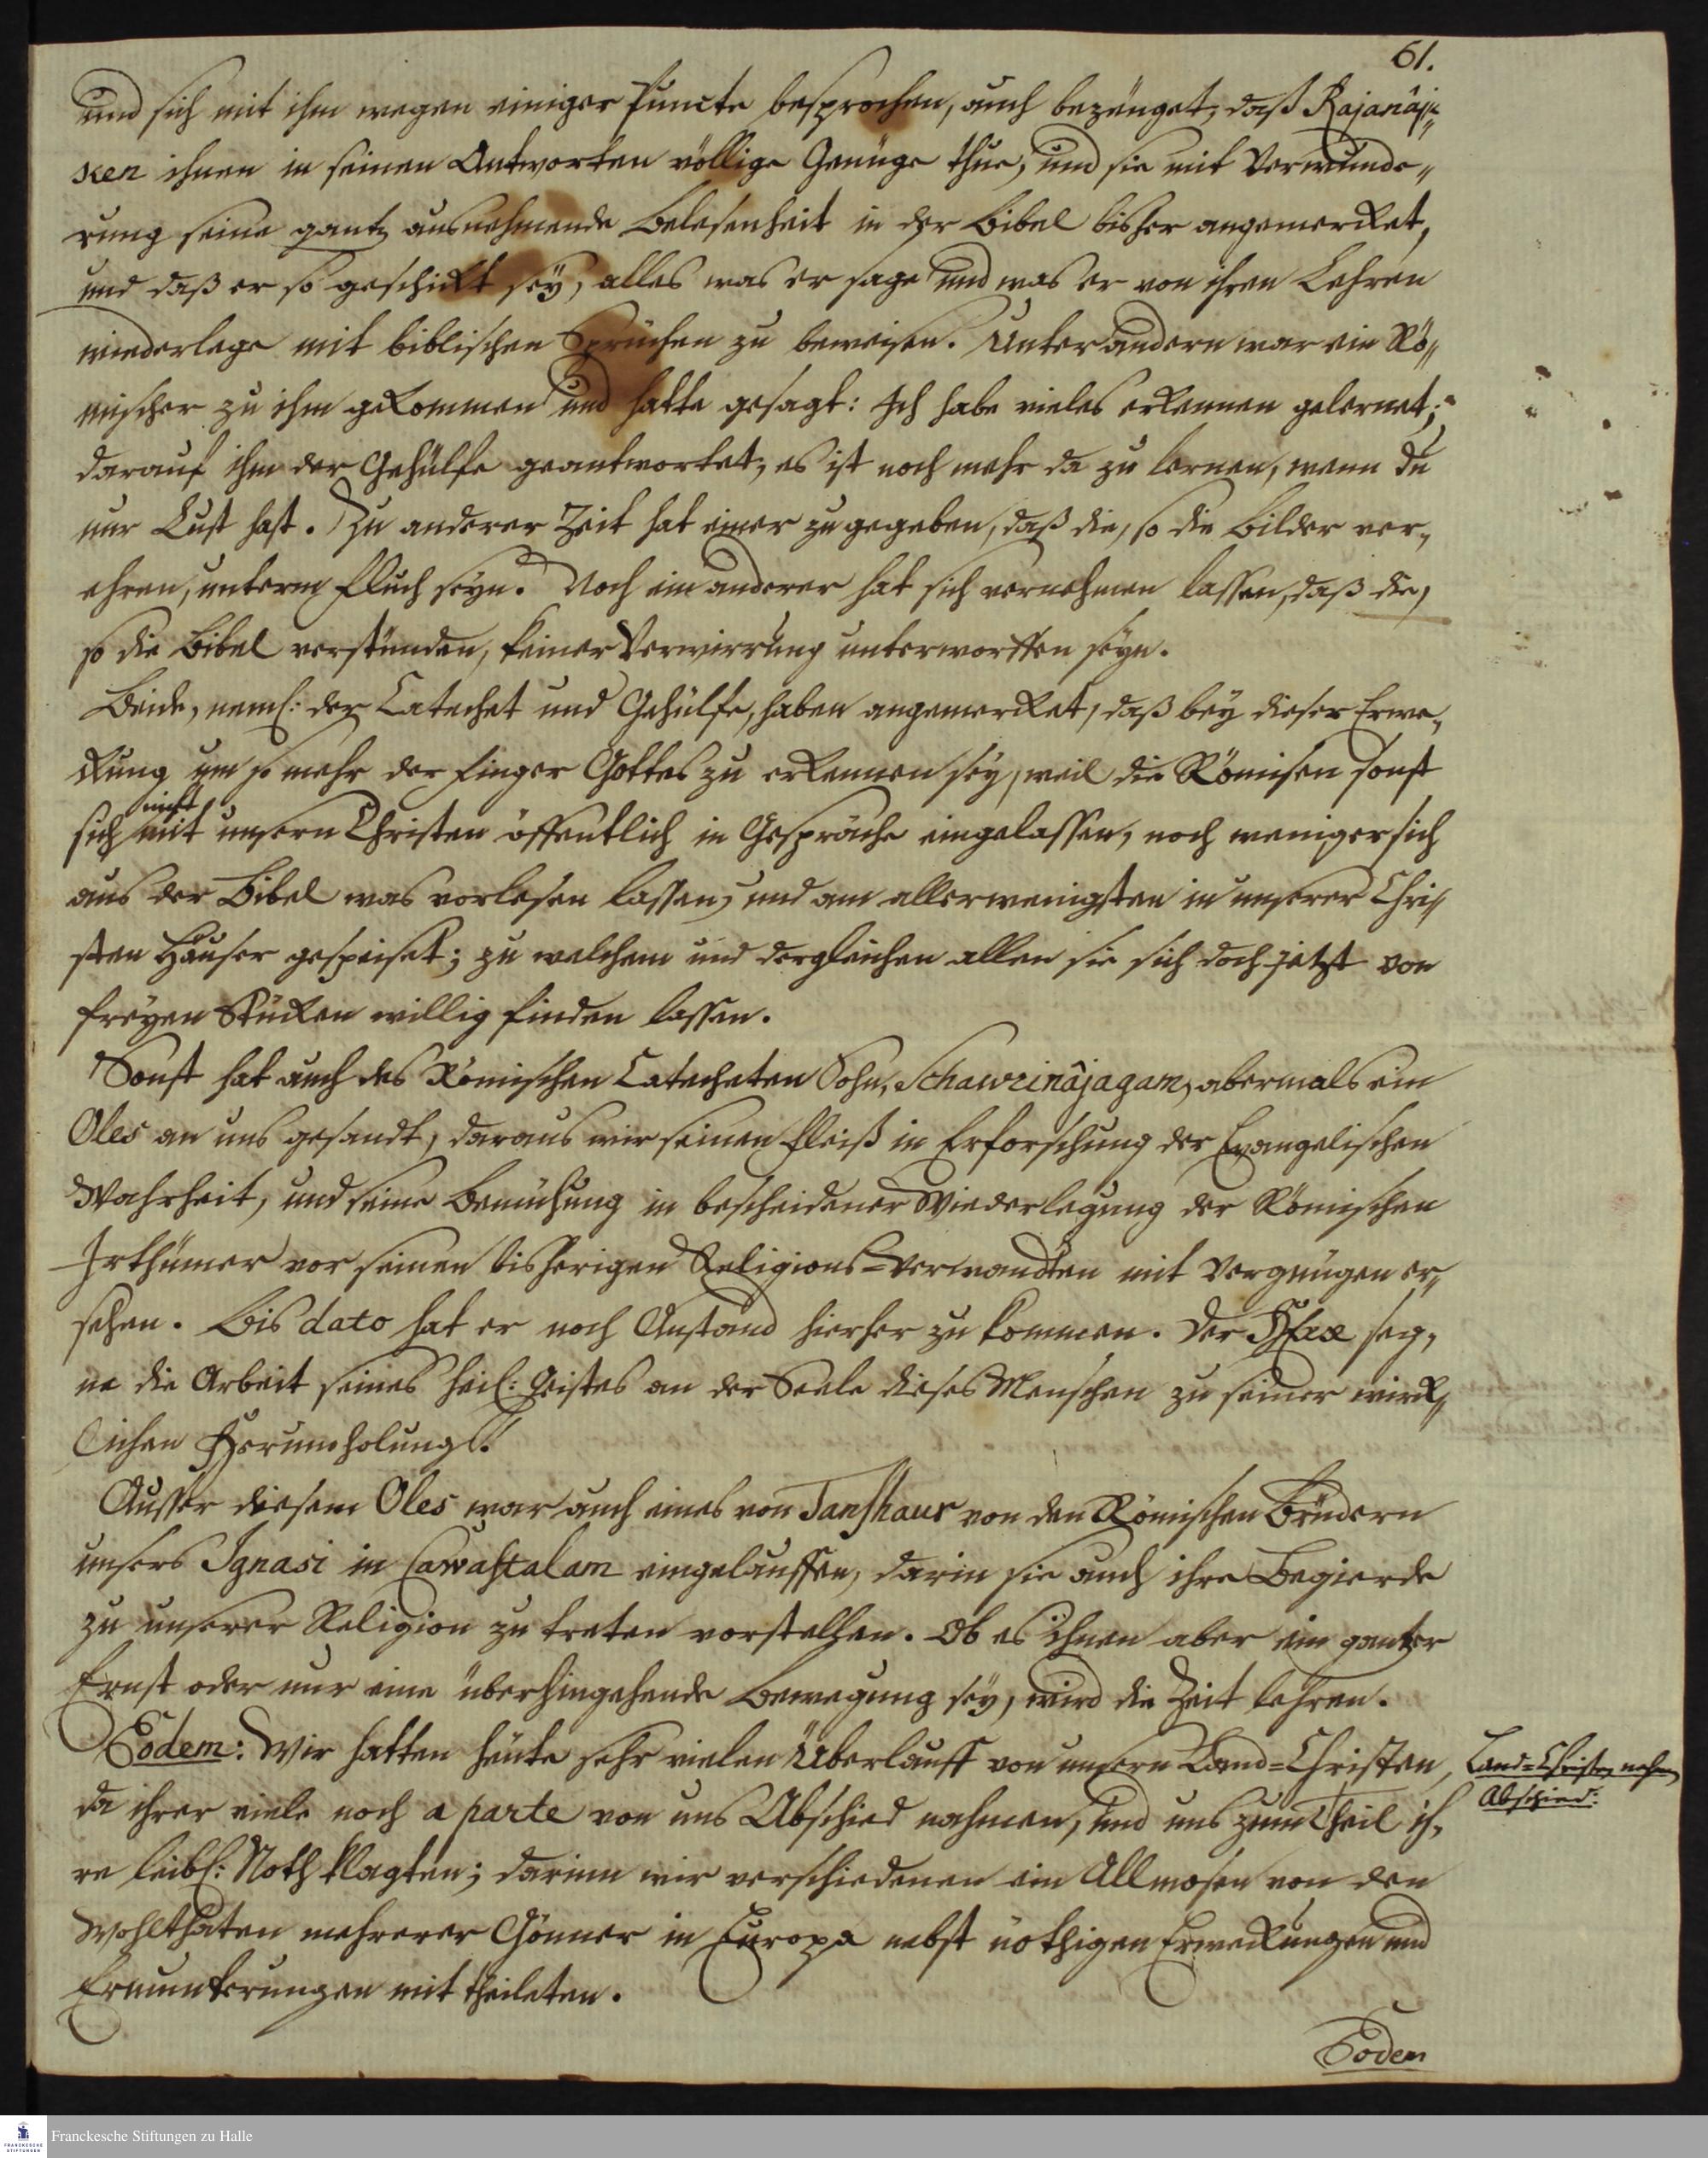 61.
und sich mit ihm wegen einiger Puncte besprochen, auch bezeuget, daß Rajanâji-
ken ihnen in seinen Antworten völlige Genüge thue, und sie mit Verwunde-
rung seine gantz ausnehmende Belesenheit in der Bibel bisher angemercket,
und daß er so geschickt sey, alles was er sage und was er von ihren Lehren
wiederlege mit biblischen Sprüchen zu beweisen. Unter andern war ein Rö-
mischer zu ihm gekommen und hatte gesagt: Ich habe vieles erkennen gelernet;
darauf ihm der Gehülfe geantwortet, es ist noch mehr da zu lernen, wenn du
nur Lust hast. Zu anderer Zeit hat einer zugegeben, daß die, so die Bilder ver-
ehren, unterm Fluch seyn. Noch ein anderer hat sich vernehmen lassen, daß die,
so die Bibel verstünden, keiner Verwirrung unterworffen seyn.
Beide, neml: der Catechet und Gehülfe, haben angemercket, daß bey dieser Erwe-
ckung um so mehr der Finger Gottes zu erkennen sey, weil die Römischen sonst
sich nicht mit unsern Christen öffentlich in Gespräche eingelassen, noch weniger sich
aus der Bibel was vorlesen lassen, und am allerwenigsten in unserer Chri-
sten Häuser gespeiset; zu welchem und dergleichen allen sie sich doch jetzt von
freyen Stücken willig finden lassen.
Sonst hat auch des Römischen Catecheten Sohn, Schawrinâjagam, abermals ein
Oles an uns gesandt, daraus wir seinen Fleiß in Erforschung der Evangelischen
Wahrheit, und seine Bemühung in bescheidener Wiederlegung der Römischen
Irthümer vor seinen bisherigen Religions-Verwandten mit Vergnügen er-
sehen. Bis dato hat er noch Anstand hierher zu kommen. Der HErr seg-
ne die Arbeit seines heil: Geistes an der Seele dieses Menschen zu seiner wirck-
lichen Herumholung!
Ausser diesem Oles war auch eines von Tanshaur von den Römischen Brüdern
unsers Ignasi in Cawastalam eingelauffen, darin sie auch ihre Begierde
zu unserer Religion zu treten vorstellen. Ob es ihnen aber ein gantzer
Ernst oder nur eine überhingehende Bewegung sey, wird die Zeit lehren.
Eodem: Wir hatten heute sehr vielen Überlauff von unsern Land-Christen,
Land-Christen nehmen
Abschied.
da ihrer viele noch a parte von uns Abschied nahmen, und uns zum Theil ih-
re leibl: Noth klagten; darinn wir verschiedenen ein Allmosen von den
Wohlthaten mehrerer Gönner in Europa nebst nöthigen Erweckungen und
Ermunterungen mittheileten.
Eodem
Franckesche Stiftungen zu Halle
FRANCKESCHE
STIFTUNGEN